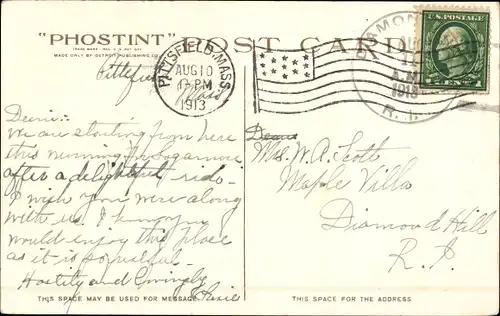 "PHOSTINT" POST CARD
TRADE MARK REG. U.S. PAT. OFF.
MADE ONLY BY DETROIT PUBLISHING CO.
PITTSFIELD, MASS.
AUG 10
PM
1913
DIAMOND
AUG
A.M.
1913
R. I.
U.S. POSTAGE
1 CENT 1
Mass
Dearie:-
We are starting from here
this morning for Sagamore
after a delightful ride.
I wish you were along
with us. I know you
would enjoy this place
as it is so restful.
Hastily and lovingly
THIS SPACE MAY BE USED FOR MESSAGE
Dear
Mrs. W. A. Scott
Maple Villa
Diamond Hill
R. I.
THIS SPACE FOR THE ADDRESS